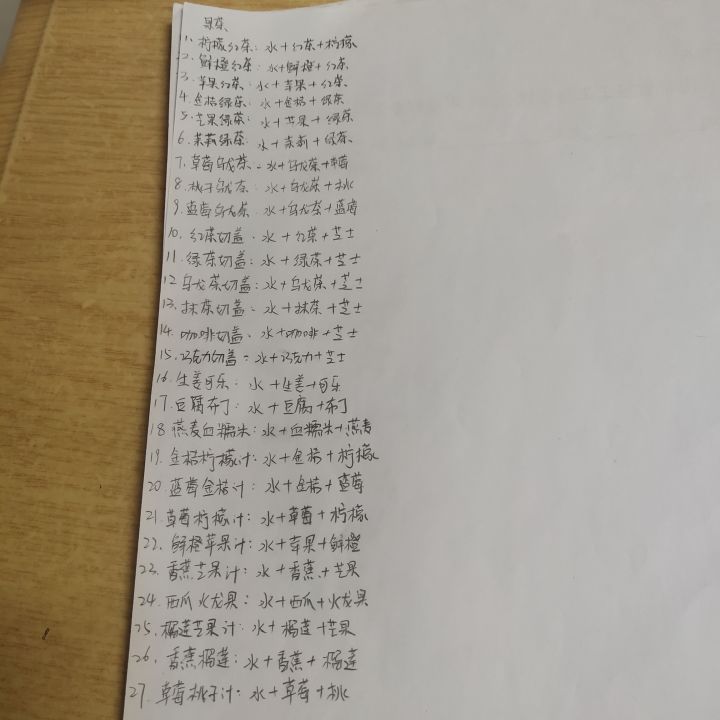 果茶
1. 柠檬红茶: 水+红茶+柠檬
2. 鲜橙红茶: 水+鲜橙+红茶
3. 苹果红茶: 水+苹果+红茶
4. 金桔绿茶: 水+金桔+绿茶
5. 芒果绿茶: 水+芒果+绿茶
6. 茉莉绿茶: 水+茉莉+绿茶
7. 草莓乌龙茶: 水+乌龙茶+草莓
8. 桃子乌龙茶: 水+乌龙茶+桃
9. 蓝莓乌龙茶: 水+乌龙茶+蓝莓
10. 红茶奶盖: 水+红茶+芝士
11. 绿茶奶盖: 水+绿茶+芝士
12. 乌龙茶奶盖: 水+乌龙茶+芝士
13. 抹茶奶盖: 水+抹茶+芝士
14. 咖啡奶盖: 水+咖啡+芝士
15. 巧克力奶盖: 水+巧克力+芝士
16. 生姜可乐: 水+生姜+可乐
17. 豆腐布丁: 水+豆腐+布丁
18. 燕麦血糯米: 水+血糯米+燕麦
19. 金桔柠檬汁: 水+金桔+柠檬
20. 蓝莓金桔汁: 水+金桔+蓝莓
21. 草莓柠檬汁: 水+草莓+柠檬
22. 鲜橙苹果汁: 水+苹果+鲜橙
23. 香蕉芒果汁: 水+香蕉+芒果
24. 西瓜火龙果: 水+西瓜+火龙果
25. 榴莲芒果汁: 水+榴莲+芒果
26. 香蕉榴莲: 水+香蕉+榴莲
27. 草莓桃子汁: 水+草莓+桃